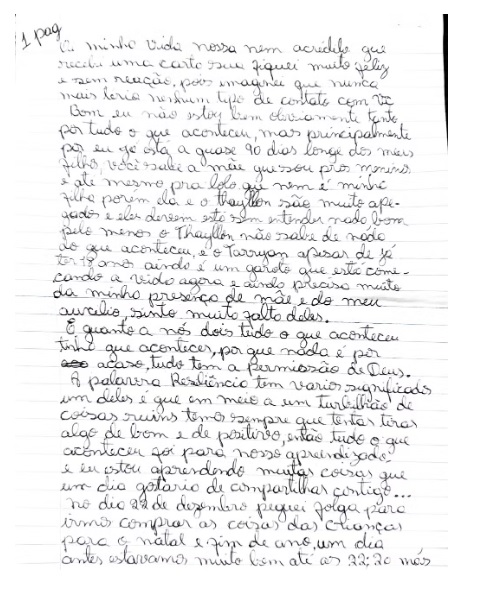 1 pag
Oi minha vida nossa nem acredito que
recebi uma carta sua fiquei muito feliz
e sem reação, pois imaginei que nunca
mais teria nenhum tipo de contato com vc
Bom eu não estou bem obviamente tanto
por tudo o que aconteceu, mas principalmente
por eu já está a quase 90 dias longe dos meus
filhos, você sabe a mãe que sou pros meninos
e até mesmo pra lolo que nem é minha
filha porem ela e o thayllon são muito ape-
gados e eles devem está sem entender nada bom
pelo menos o Thayllon não sabe de nada
do que aconteceu, e o Tarryan apesar de já
ter 18 anos ainda é um garoto que está come-
çando a vida agora e ainda precisa muito
da minha presença de mãe e do meu
auxcilio, sinto muito falta deles.
E quanto a nós dois tudo o que aconteceu
tinha que acontecer, por que nada é por
acaso, tudo tem a permissão de Deus.
A palavra Resiliência tem varios significados
um deles é que em meio a um turbilhão de
coisas ruins temos sempre que tentar tirar
algo de bom e de positivo, então tudo o que
aconteceu foi para nosso aprendizado
e eu estou aprendendo muitas coisas que
um dia gostaria de compartilhar contigo...
no dia 22 de dezembro peguei folga para
irmos comprar as coisas das crianças
para o natal e fim de ano, um dia
antes estavamos muito bem até as 22:20 mas